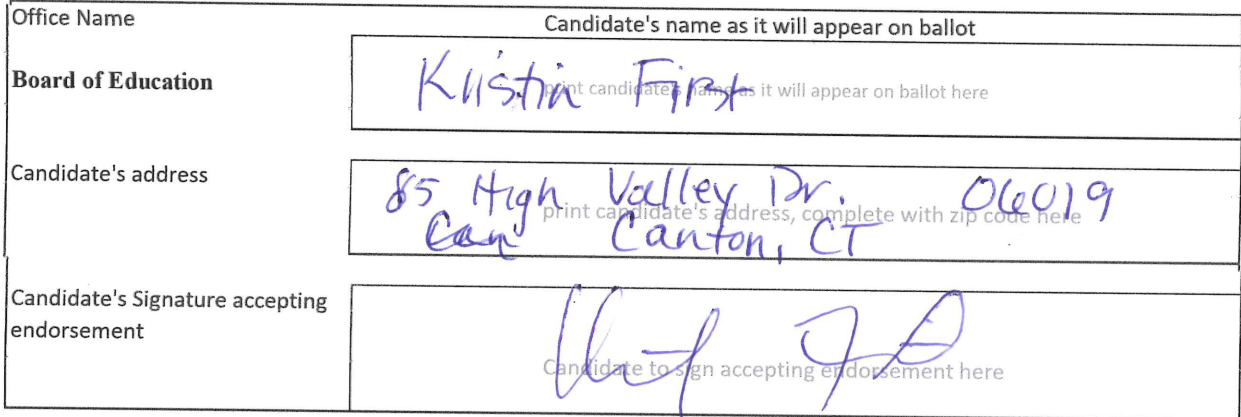 Office Name
Candidate's name as it will appear on ballot
Board of Education
Kristin First
print candidate's name as it will appear on ballot here
Candidate's address
85 High Valley Dr. 06019
print candidate's address, complete with zip code here
Can Canton, CT
Candidate's Signature accepting
endorsement
Candidate to sign accepting endorsement here